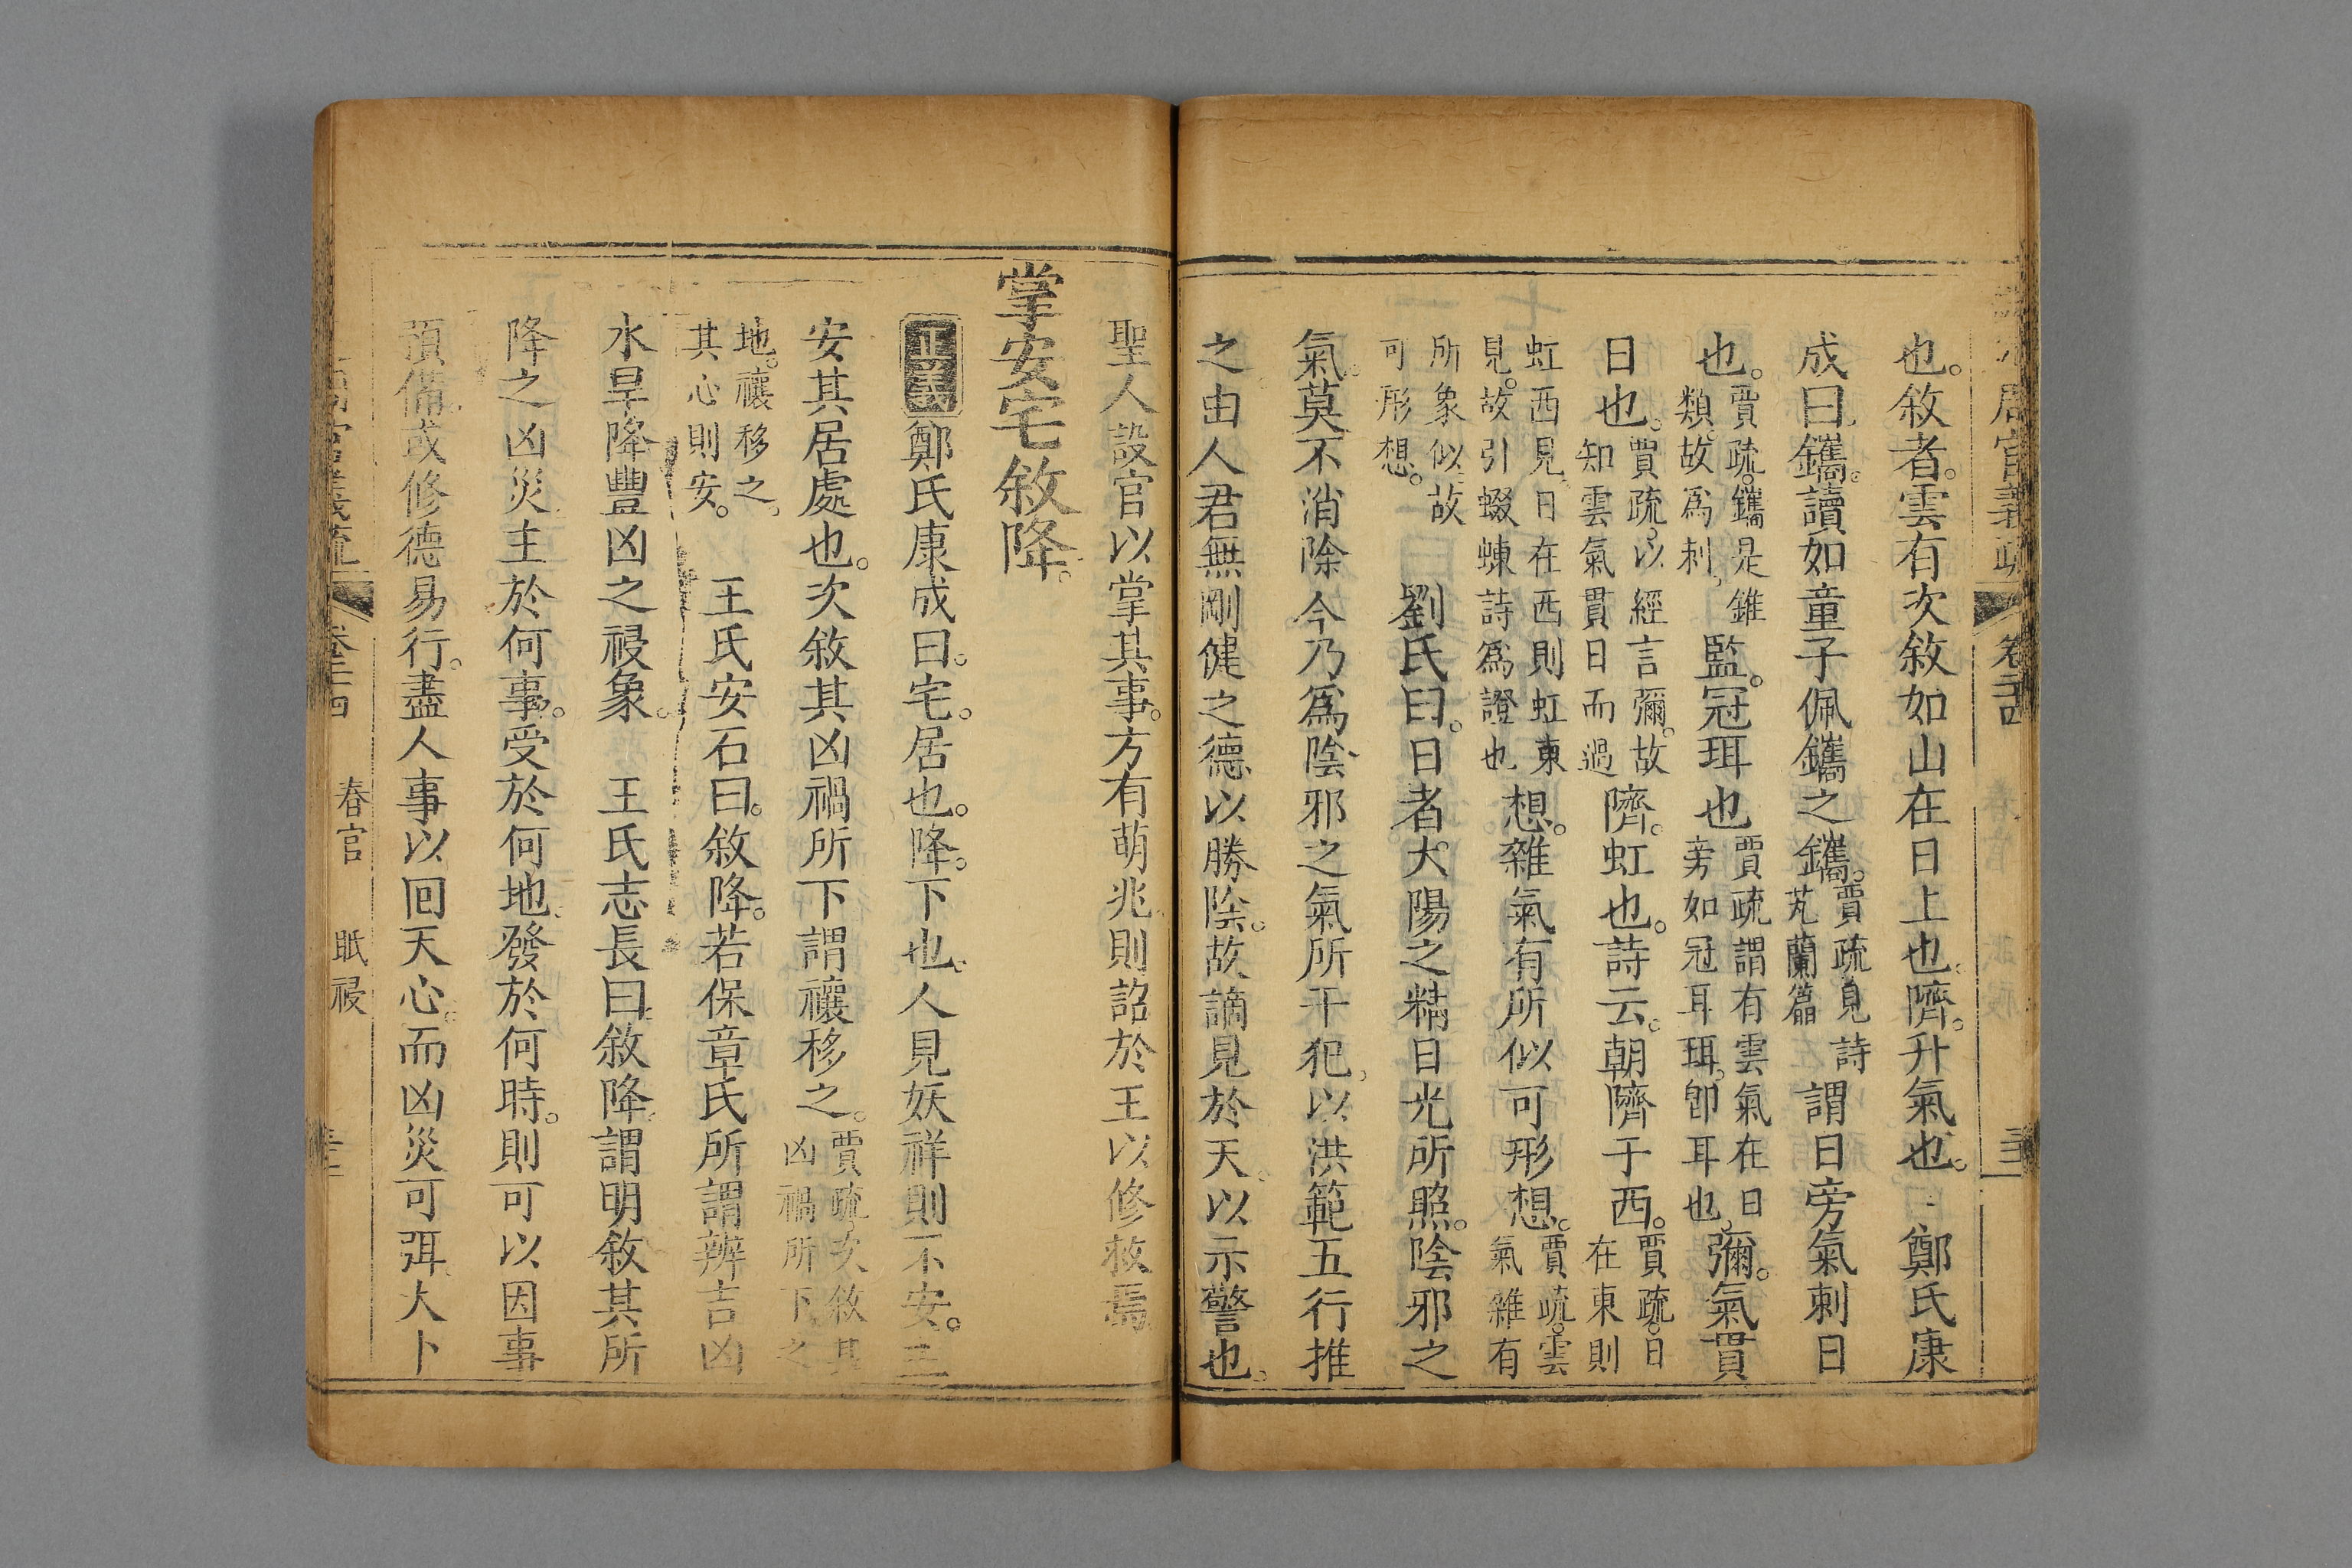 周官義疏 卷二十四
也。敘者。雲有次敘如山在日上也。隮。升氣也。 鄭氏康
成曰。鑴。讀如童子佩鑴之鑴。賈疏見詩芄蘭篇 謂日旁氣刺日
也。賈疏。鑴是錐類。故爲刺。 監。冠珥也 賈疏謂有雲氣在日旁如冠耳珥。卽耳也。 彌。氣貫
日也。賈疏。以經言彌。故知雲氣貫日而過 隮。虹也。詩云。朝隮于西。賈疏。日在東則
虹西見。日在西則虹東見。故引蝃蝀詩爲證也 想。雜氣有所似可形想。賈疏。雲氣雜有
所象似。故可形想。 劉氏曰。日者。大陽之精。日光所照。陰邪之
氣。莫不消除。今乃爲陰邪之氣所干犯。以洪範五行推
之。由人君無剛健之德以勝陰。故謫見於天。以示警也。
聖人設官以掌其事。方有萌兆。則詔於王以修救焉
掌安宅敘降。
正義 鄭氏康成曰。宅。居也。降。下也。人見妖祥則不安。主
安其居處也。次敘其凶禍所下。謂禳移之。賈疏。次敘其凶禍所下之
地。禳移之。其心則安。 王氏安石曰。敘降。若保章氏所謂辨吉凶
水旱降豐凶之祲象。 王氏志長曰。敘降。謂明敘其所
降之凶災。主於何事。受於何地。發於何時。則可以因事
預備。或修德易行。盡人事以回天心。而凶災可弭。大卜
周官義疏 卷二十四 春官 眡祲